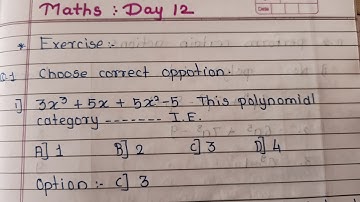 Maths : Day 12
* Exercise :-
Q.1 Choose correct oppotion.
i] 3x³ + 5x + 5x²-5 This polynomial
category ------- I.E.
A] 1 B] 2 C] 3 D] 4
Option :- C] 3